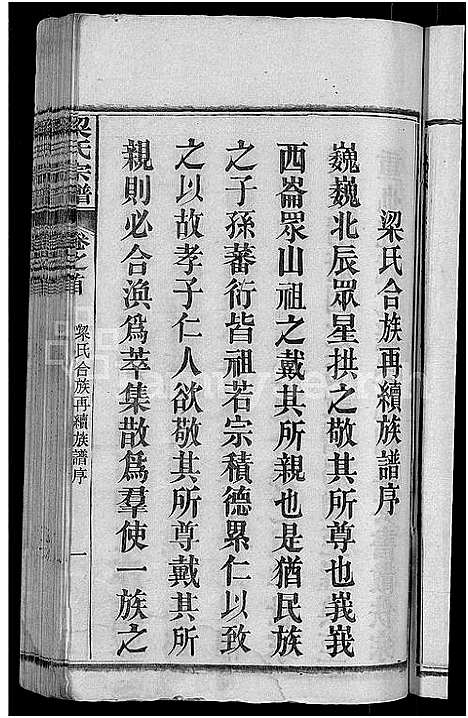 梁氏合族再續族譜序
巍巍北辰眾星拱之敬其所尊也峩峩
西崙眾山祖之戴其所親也是猶民族
之子孫蕃衍皆祖若宗積德累仁以致
之以故孝子仁人欲敬其所尊戴其所
親則必合渙爲萃集散爲羣使一族之
梁氏宗譜
卷之首
梁氏合族再續族譜序
一